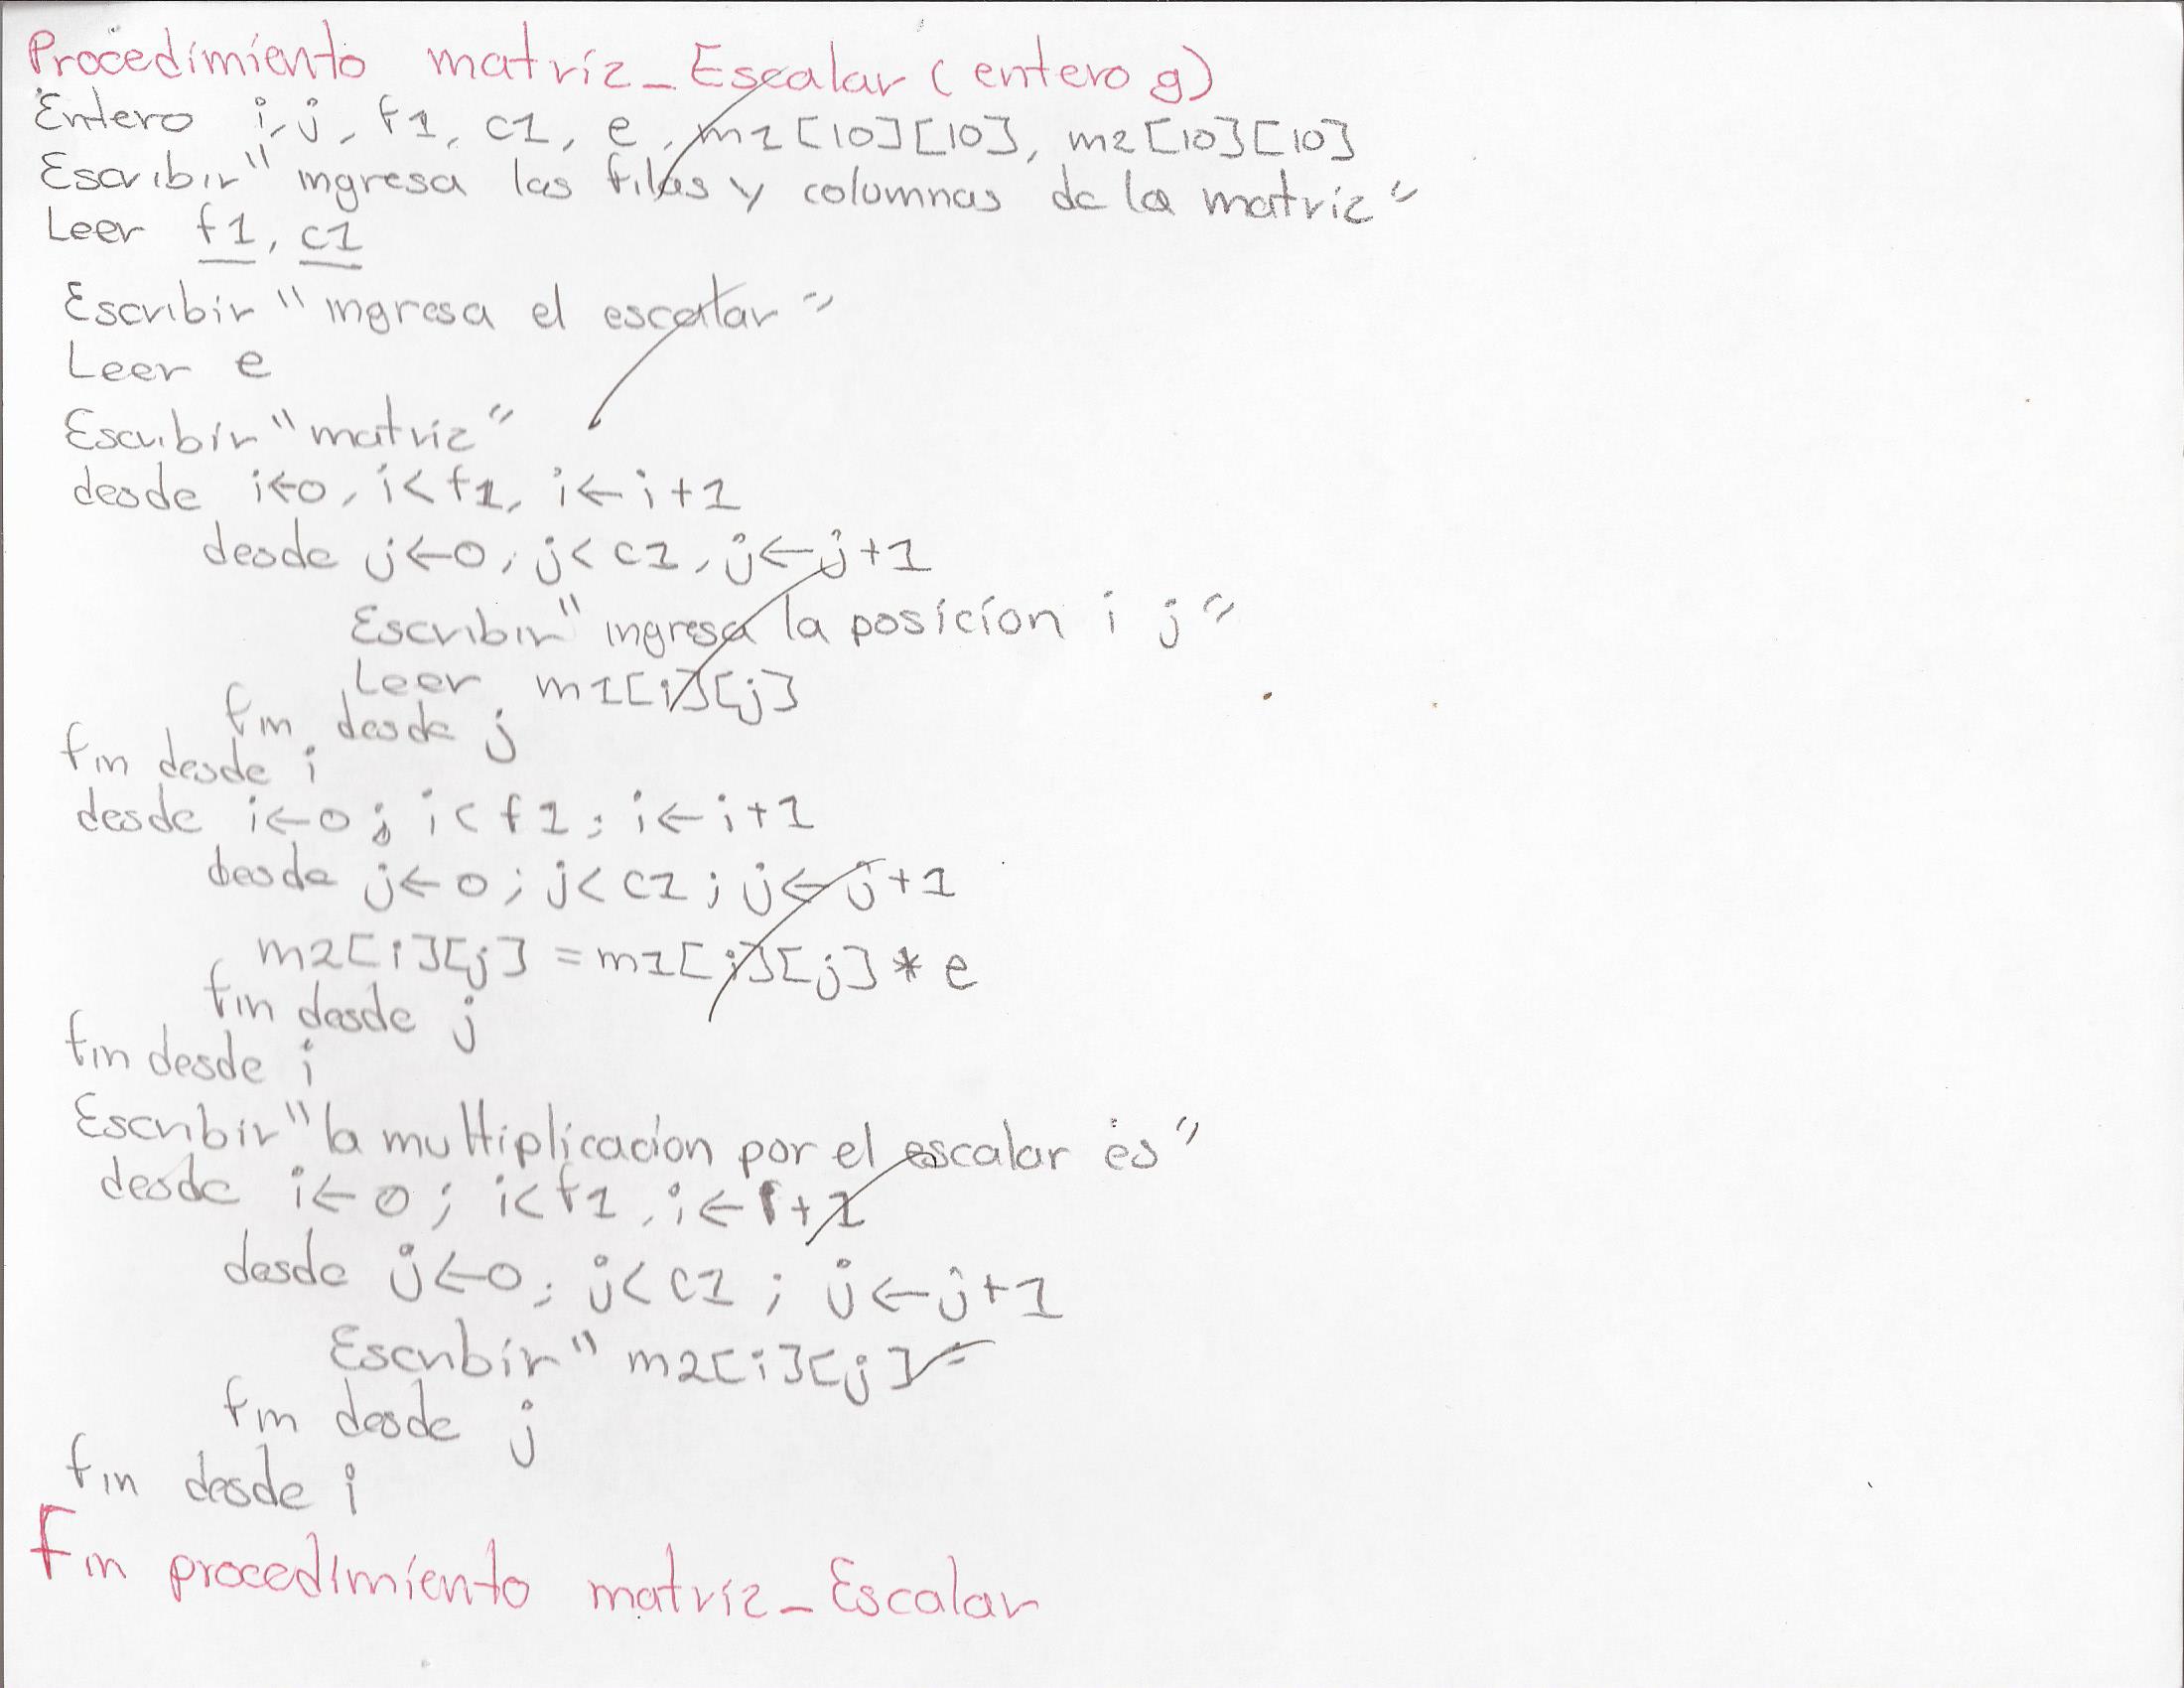 Procedimiento matriz_Escalar (entero g)
Entero i, j, f1, c1, e, m1[10][10], m2[10][10]
Escribir "ingresa las filas y columnas de la matriz"
Leer f1, c1
Escribir "ingresa el escalar"
Leer e
Escribir "matriz"
desde i←0, i<f1, i←i+1
desde j←0, j<c1, j←j+1
Escribir "ingresa la posición i j"
Leer m1[i][j]
fin desde j
fin desde i
desde i←0; i<f1; i←i+1
desde j←0; j<c1; j←j+1
m2[i][j] = m1[i][j] * e
fin desde j
fin desde i
Escribir "la multiplicacion por el escalar es"
desde i←0; i<f1, i←i+1
desde j←0; j<c1; j←j+1
Escribir "m2[i][j]"
fin desde j
fin desde i
Fin procedimiento matriz_Escalar